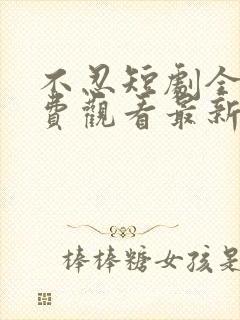 不忍短劇全
費觀看最新
棒棒糖女孩是